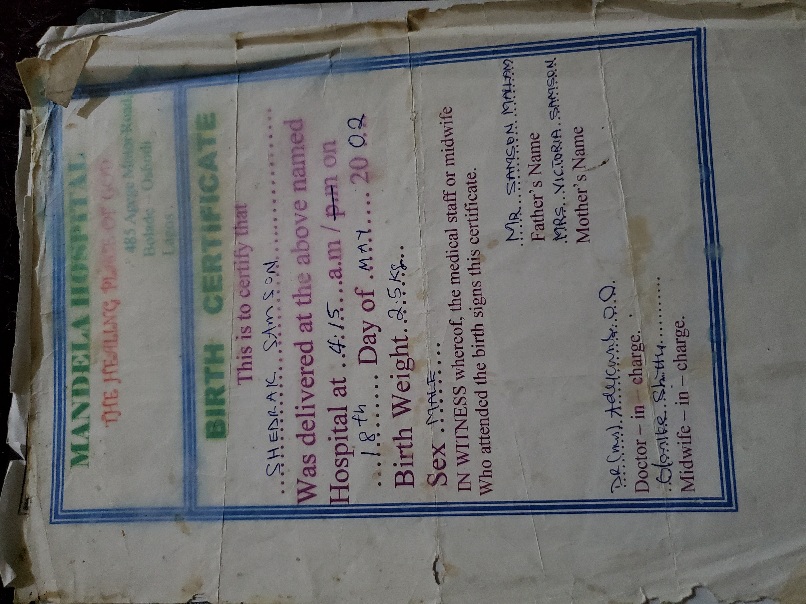 MANDELA HOSPITAL
THE HEALING PLACE OF GOD
485 Agege Motor Road,
Bolade - Oshodi
Lagos
BIRTH CERTIFICATE
This is to certify that
SHEDRAK SAMSON
Was delivered at the above named
Hospital at 4:15 a.m / p.m on
18th Day of MAY 20 02
Birth Weight 2.5kg
Sex MALE
IN WITNESS whereof, the medical staff or midwife
Who attended the birth signs this certificate.
MR SAMSON
Father's Name
MRS. VICTORIA SAMSON
Mother's Name
DR (Mrs)
Doctor – in – charge.
Midwife – in – charge.